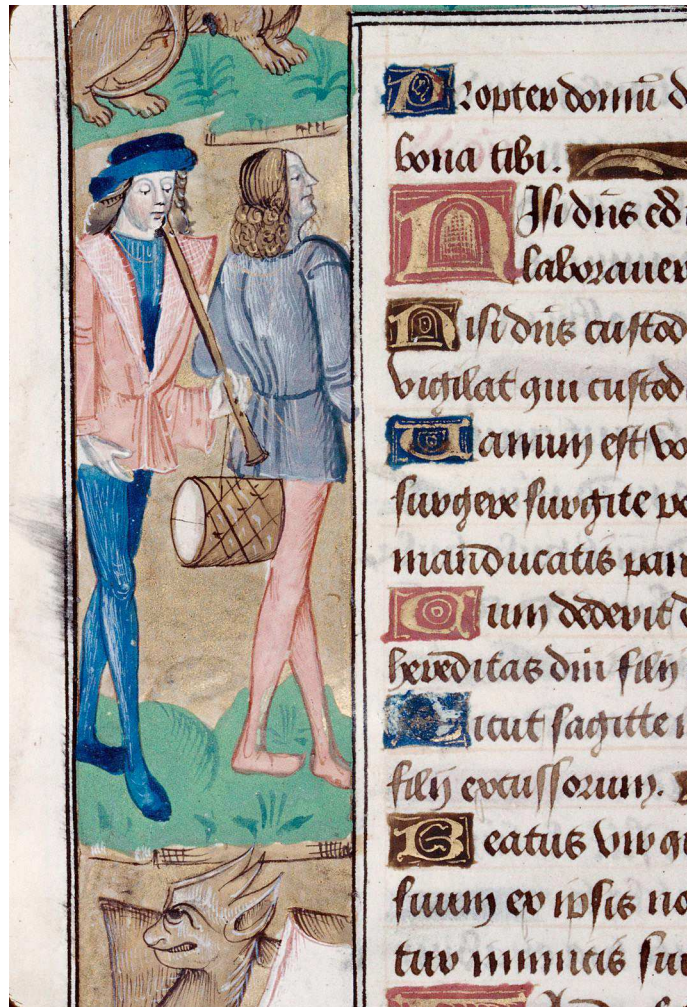 Propter domū d
bona tibi.
Nisi dn̄s ed
laborauer
Nisi dn̄s custod
vigilat qui custod
Uanum est vo
surgere surgite po
manducatis pan
Cum dederit d
hereditas dn̄i filij
Sicut sagitte i
filij excussorum.
Beatus vir q
suum ex ipsis no
tur inimicis sui